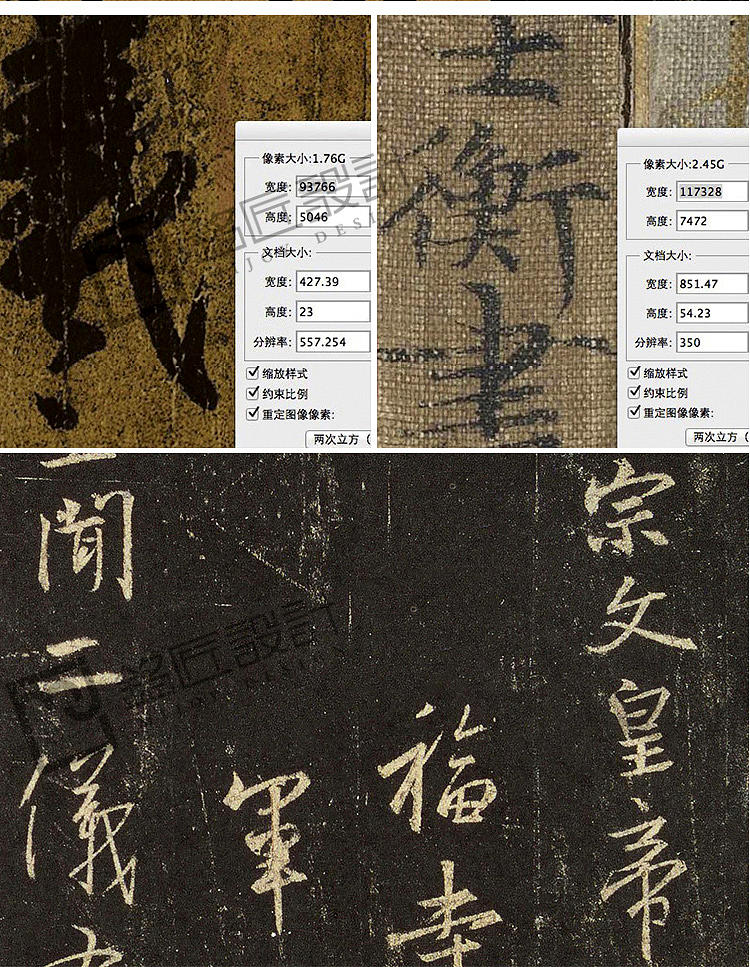 像素大小:1.76G
宽度: 93766
高度: 5046
文档大小:
宽度: 427.39
高度: 23
分辨率: 557.254
缩放样式
约束比例
重定图像像素:
两次立方（
衡書
像素大小:2.45G
宽度: 117328
高度: 7472
文档大小:
宽度: 851.47
高度: 54.23
分辨率: 350
缩放样式
约束比例
重定图像像素:
两次立方（
宗文皇帝
福寺
軍
聞二儀
匠設計